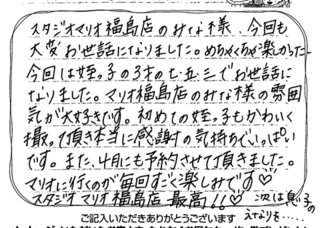 スタジオマリオ福島店のみな様、今回も
大変お世話になりました。めちゃくちゃ楽かった
今回は姪っ子の3才の七五三でお世話に
なりました。マリオ福島店のみな様の雰囲
気が大好きです。初めての姪っ子もかわいく
撮って頂き本当に感謝の気持ちでいっぱい
です。また、4月にも予約させて頂きました。
マリオに行くのが毎回すごく楽しみです♡
スタジオマリオ福島店 最高!!♡ 次は真い子の
えなりを.....
ご記入いただきありがとうございます